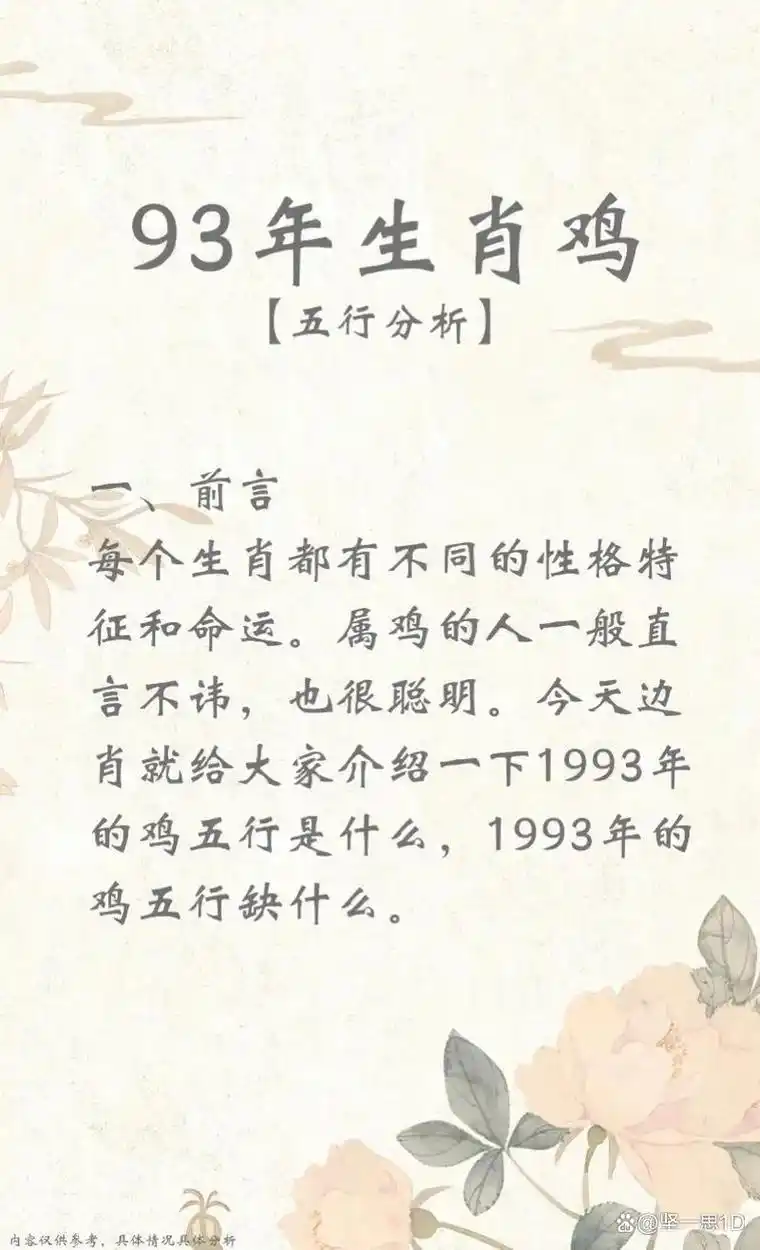 93年生肖鸡
【五行分析】
一、前言
每个生肖都有不同的性格特
征和命运。属鸡的人一般直
言不讳，也很聪明。今天边
肖就给大家介绍一下1993年
的鸡五行是什么，1993年的
鸡五行缺什么。
内容仅供参考，具体情况具体分析
@坚一思1D